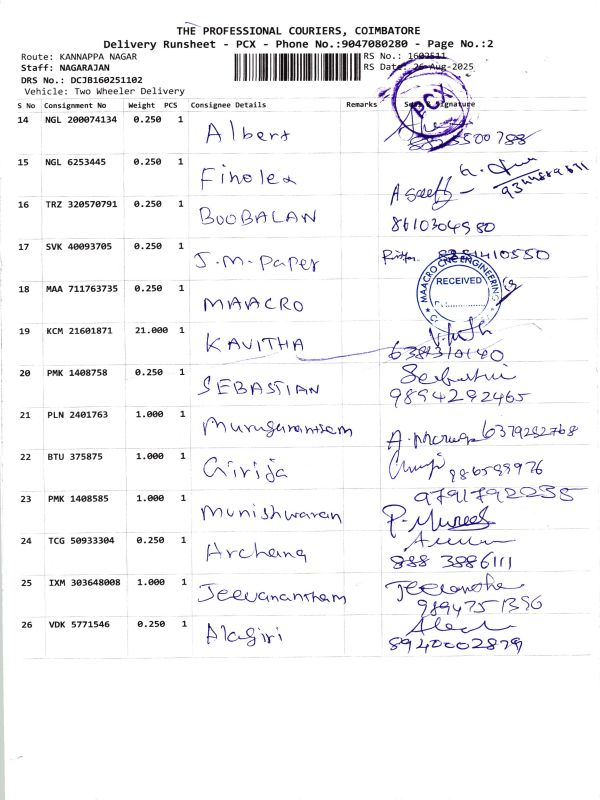 THE PROFESSIONAL COURIERS, COIMBATORE
Delivery Runsheet - PCX - Phone No.:9047080280 - Page No.:2
Route: KANNAPPA NAGAR RS No.: 1602511
Staff: NAGARAJAN RS Date: 26-Aug-2025
DRS No.: DCJB160251102
Vehicle: Two Wheeler Delivery
PCX
S No Consignment No Weight PCS Consignee Details Remarks Signature
14 NGL 200074134 0.250 1 Albert
15 NGL 6253445 0.250 1 Finolex
16 TRZ 320570791 0.250 1 BOOBALAN 8610304980
17 SVK 40093705 0.250 1 J.M-Paper
18 MAA 711763735 0.250 1 MAACRO
MAACRO CNC ENGINEERING
RECEIVED
19 KCM 21601871 21.000 1 KAVITHA 6381310140
20 PMK 1408758 0.250 1 SEBASTIAN 9894292465
21 PLN 2401763 1.000 1 Muruganantham 6379282768
22 BTU 375875 1.000 1 Girija
9791792035
23 PMK 1408585 1.000 1 Munishwaran
24 TCG 50933304 0.250 1 Archana 888 3886111
25 IXM 303648008 1.000 1 Jeevanantham 9894751396
26 VDK 5771546 0.250 1 Alagiri 8940002879